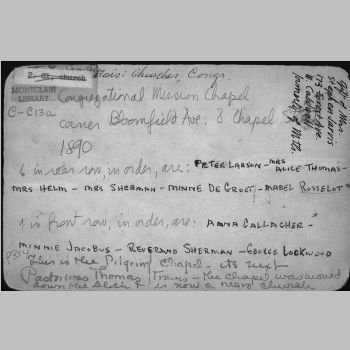 2-07, church
Churches, Congr.
MONTCLAIR
LIBRARY
C-C13a
Congregational Mission Chapel
corner Bloomfield Ave. & Chapel St
1890
6 in rear row, in order, are: PETER LARSON - MRS ALICE THOMAS -
MRS HELM - MRS SHERMAN - MINNIE DE GROET - MABEL ROSSELOT
4 in front row, in order, are: ANNA GALLAGHER -
MINNIE JACOBUS - REVERAND SHERMAN - GEORGE LOCKWOOD
This is the Pilgrim Chapel - its next
Pastor was Thomas Travis - the chapel was moved
down the block & is now a negro church
Gift of Mrs.
Stephen Jarvis
173 Forest Ave.
Caldwell
formerly of Mtc.